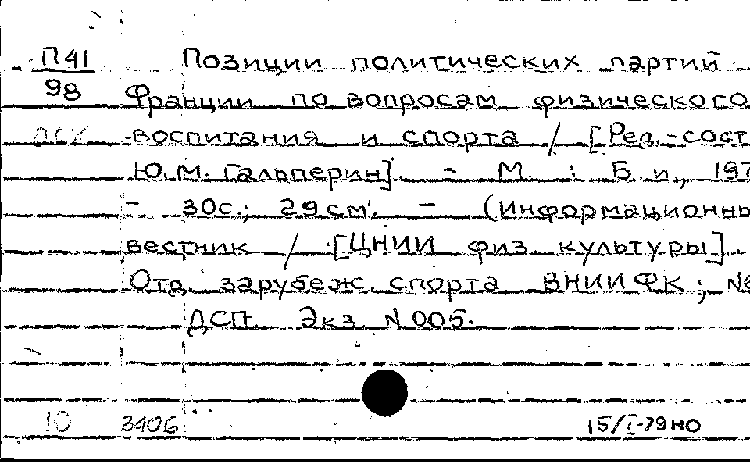 П41 Позиции политических партий
98 Франции по вопросам физического
воспитания и спорта / [Ред.-сост
Ю.М. Гальперин]. - М. : Б.и., 197
- 30с.; 29см. - (Информационны
вестник / [ЦНИИ физ. культуры].
Отд. зарубеж. спорта ВНИИФК; №
ДСП. Экз. N 005.
10 3406 15/I-79 но